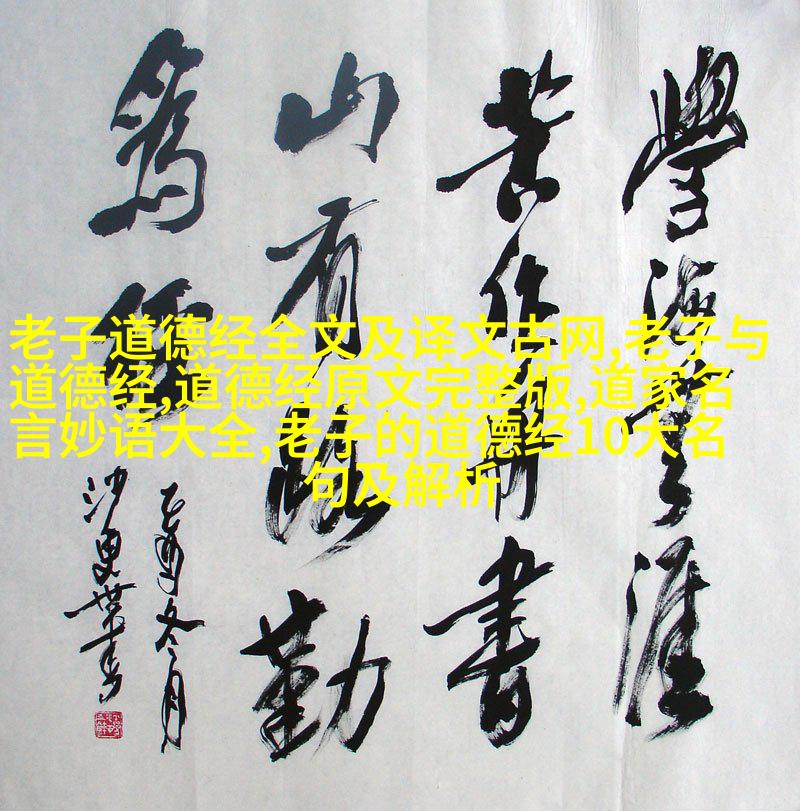 老子道德经全文及译文古网,老子与
道德经,道德经原文完整版,道家名
言妙语大全,老子的道德经10大名
句及解析
學海無涯
苦作舟書
山有路勤
為徑
乙酉冬月